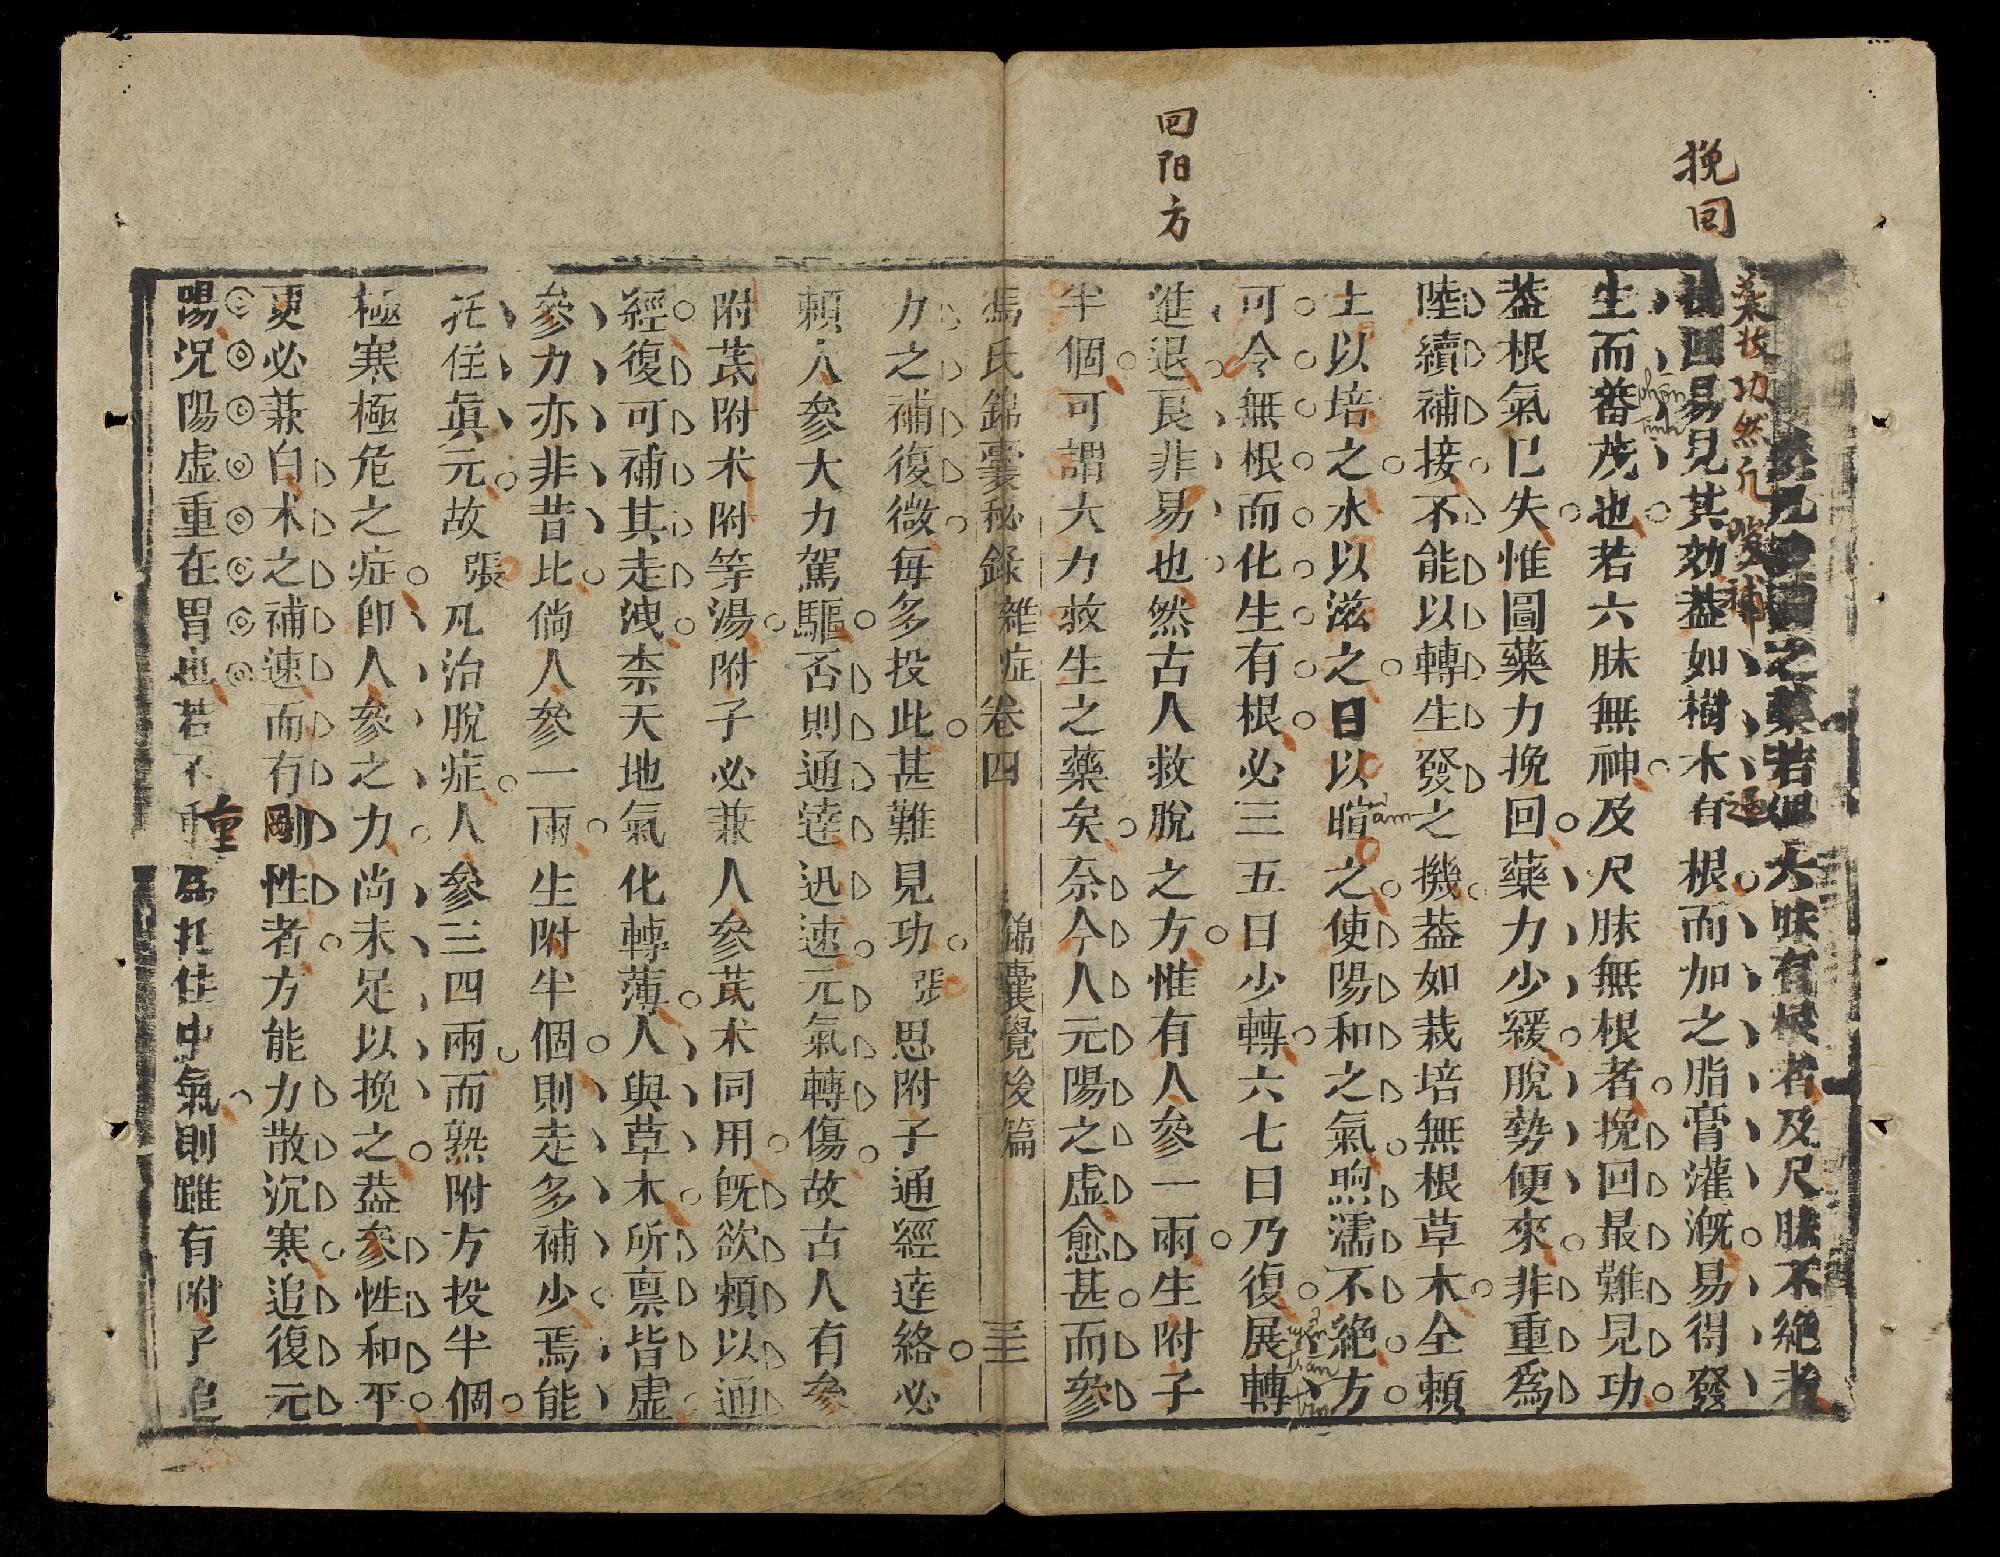 挽回
回阳方
之藥若但六脉有根者及尺脉不絶者
挽回易見其効葢如樹木有根而加之脂膏灌漑易得發
生而蕃茂也若六脉無神及尺脉無根者挽回最難見功
phồn
葢根氣已失惟圖藥力挽回藥力少緩脫勢便來非重爲
陸續補接不能以轉生發之機葢如栽培無根草木全頼
土以培之水以滋之日以暄之使陽和之氣煦濡不絶方
可令無根而化生有根必三五日少轉六七日乃復展轉
進退良非易也然古人救脫之方惟有人參一兩生附子
半個可謂大力救生之藥矣奈今人元陽之虛愈甚而參
馮氏錦囊秘錄 雜症 卷四 錦囊覺後篇
力之補復微每多投此甚難見功張思附子通經達絡必
頼人參大力駕驅否則通達迅速元氣轉傷故古人有參
附芪附术附等湯附子必兼人參芪术同用旣欲頼以通
經復可補其走洩柰天地氣化轉薄人與草木所禀皆虛
參力亦非昔比倘人參一兩生附半個則走多補少焉能
托住眞元故張凡治脫症人參三四兩而熟附方投半個
極寒極危之症卽人參之力尚未足以挽之葢參性和平
更必兼白术之補速而有剛性者方能力散沉寒追復元
陽况陽虛重在胃也若不重爲托住中氣則雖有附子追
重